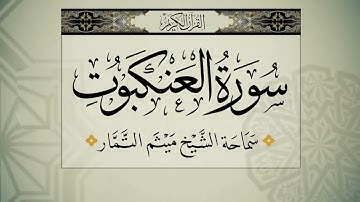 القرآن الكريم
سُورَةُ العَنكَبُوتِ
سَمَاحَة الشَّيْخ مَيْثَم التَّمَّار